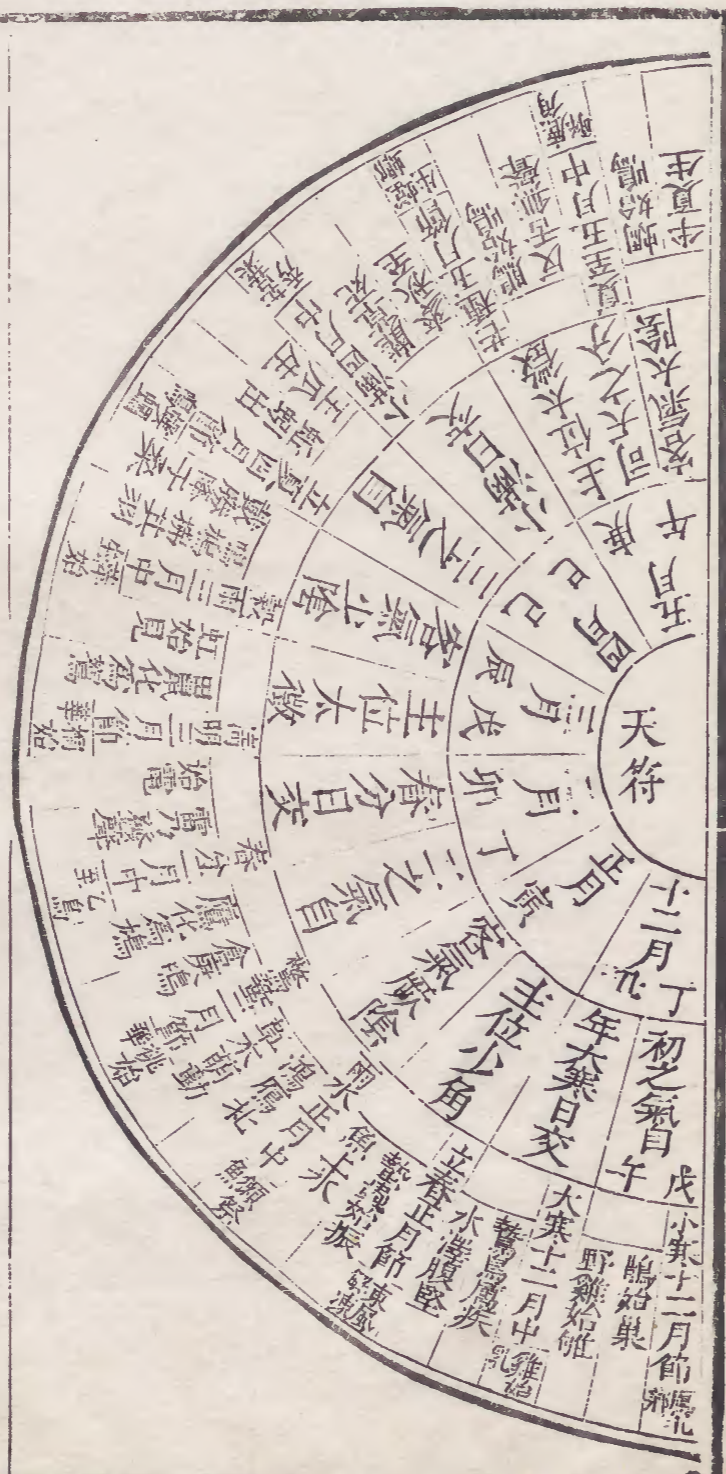 天符
十二月丁丑
正月寅
二月丁卯
三月戊辰
四月己巳
五月庚午
初之氣自戊午
年大寒日交
主位少角
客氣厥陰
二之氣自
春分日交
主位太徵
客氣少陰
三之氣自
小滿日交
主位太徵
司天之分
客氣太陰
小寒十二月節鴈北鄉
鵲始巢
野雞始雊
大寒十二月中雞始乳
鷙鳥厲疾
水澤腹堅
立春正月節東風解凍
蟄蟲始振
魚上氷
雨水正月中獺祭魚
鴻鴈北
草木萌動
驚蟄二月節桃始華
倉庚鳴
鷹化為鳩
春分二月中玄鳥至
雷乃發聲
始電
清明三月節桐始華
田鼠化為鴽
虹始見
穀雨三月中萍始生
鳴鳩拂其羽
戴勝降于桑
立夏四月節螻蟈鳴
蚯蚓出
王瓜生
小滿四月中苦菜秀
靡草死
麥秋至
芒種五月節螳螂生
鵙始鳴
反舌無聲
夏至五月中鹿角解
蜩始鳴
半夏生